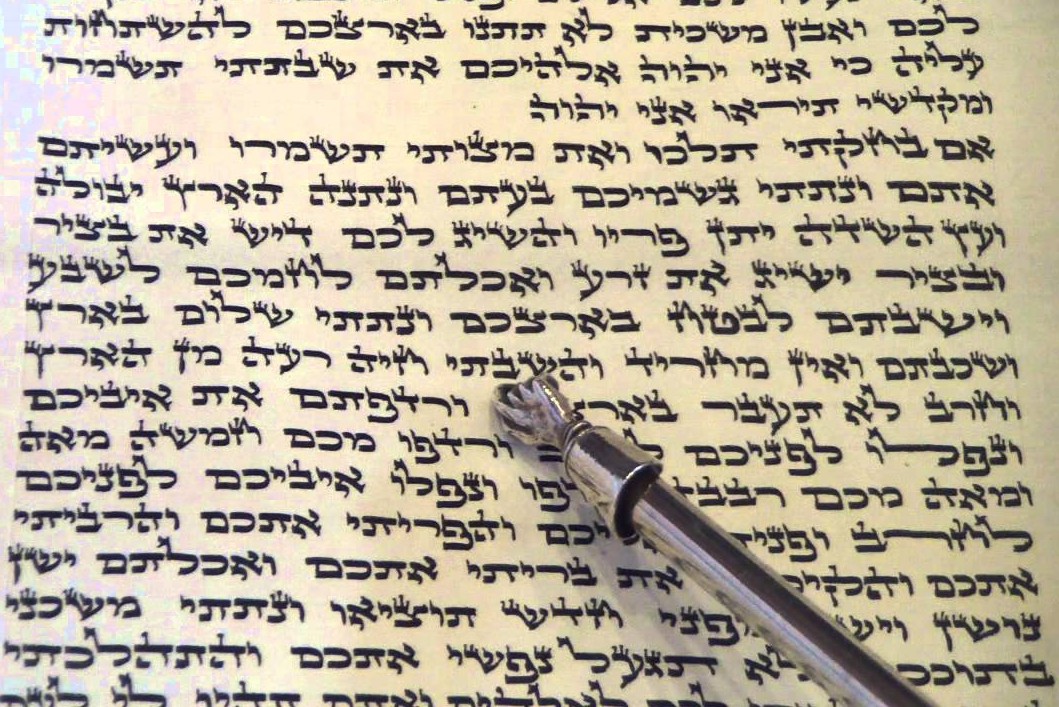 לכם ואבן משכית לא תתנו בארצכם להשתחות
עליה כי אני יהוה אלהיכם את שבתתי תשמרו
ומקדשי תיראו אני יהוה
אם בחקתי תלכו ואת מצותי תשמרו ועשיתם
אתם ונתתי גשמיכם בעתם ונתנה הארץ יבולה
ועץ השדה יתן פריו והשיג לכם דיש את בציר
ובציר ישיג את זרע ואכלתם לחמכם לשבע
וישבתם לבטח בארצכם ונתתי שלום בארץ
ושכבתם ואין מחריד והשבתי חיה רעה מן הארץ
וחרב לא תעבר ורדפתם את איביכם
ונפלו לפניכם ורדפו מכם חמשה מאה
ומאה מכם ונפלו איביכם לפניכם
לחרב והפריתי אתכם והרביתי
אתכם את בריתי אתכם ואכלתם ישן
נושן חדש תוציאו ונתתי משכני
תגעל נפשי אתכם והתהלכתי